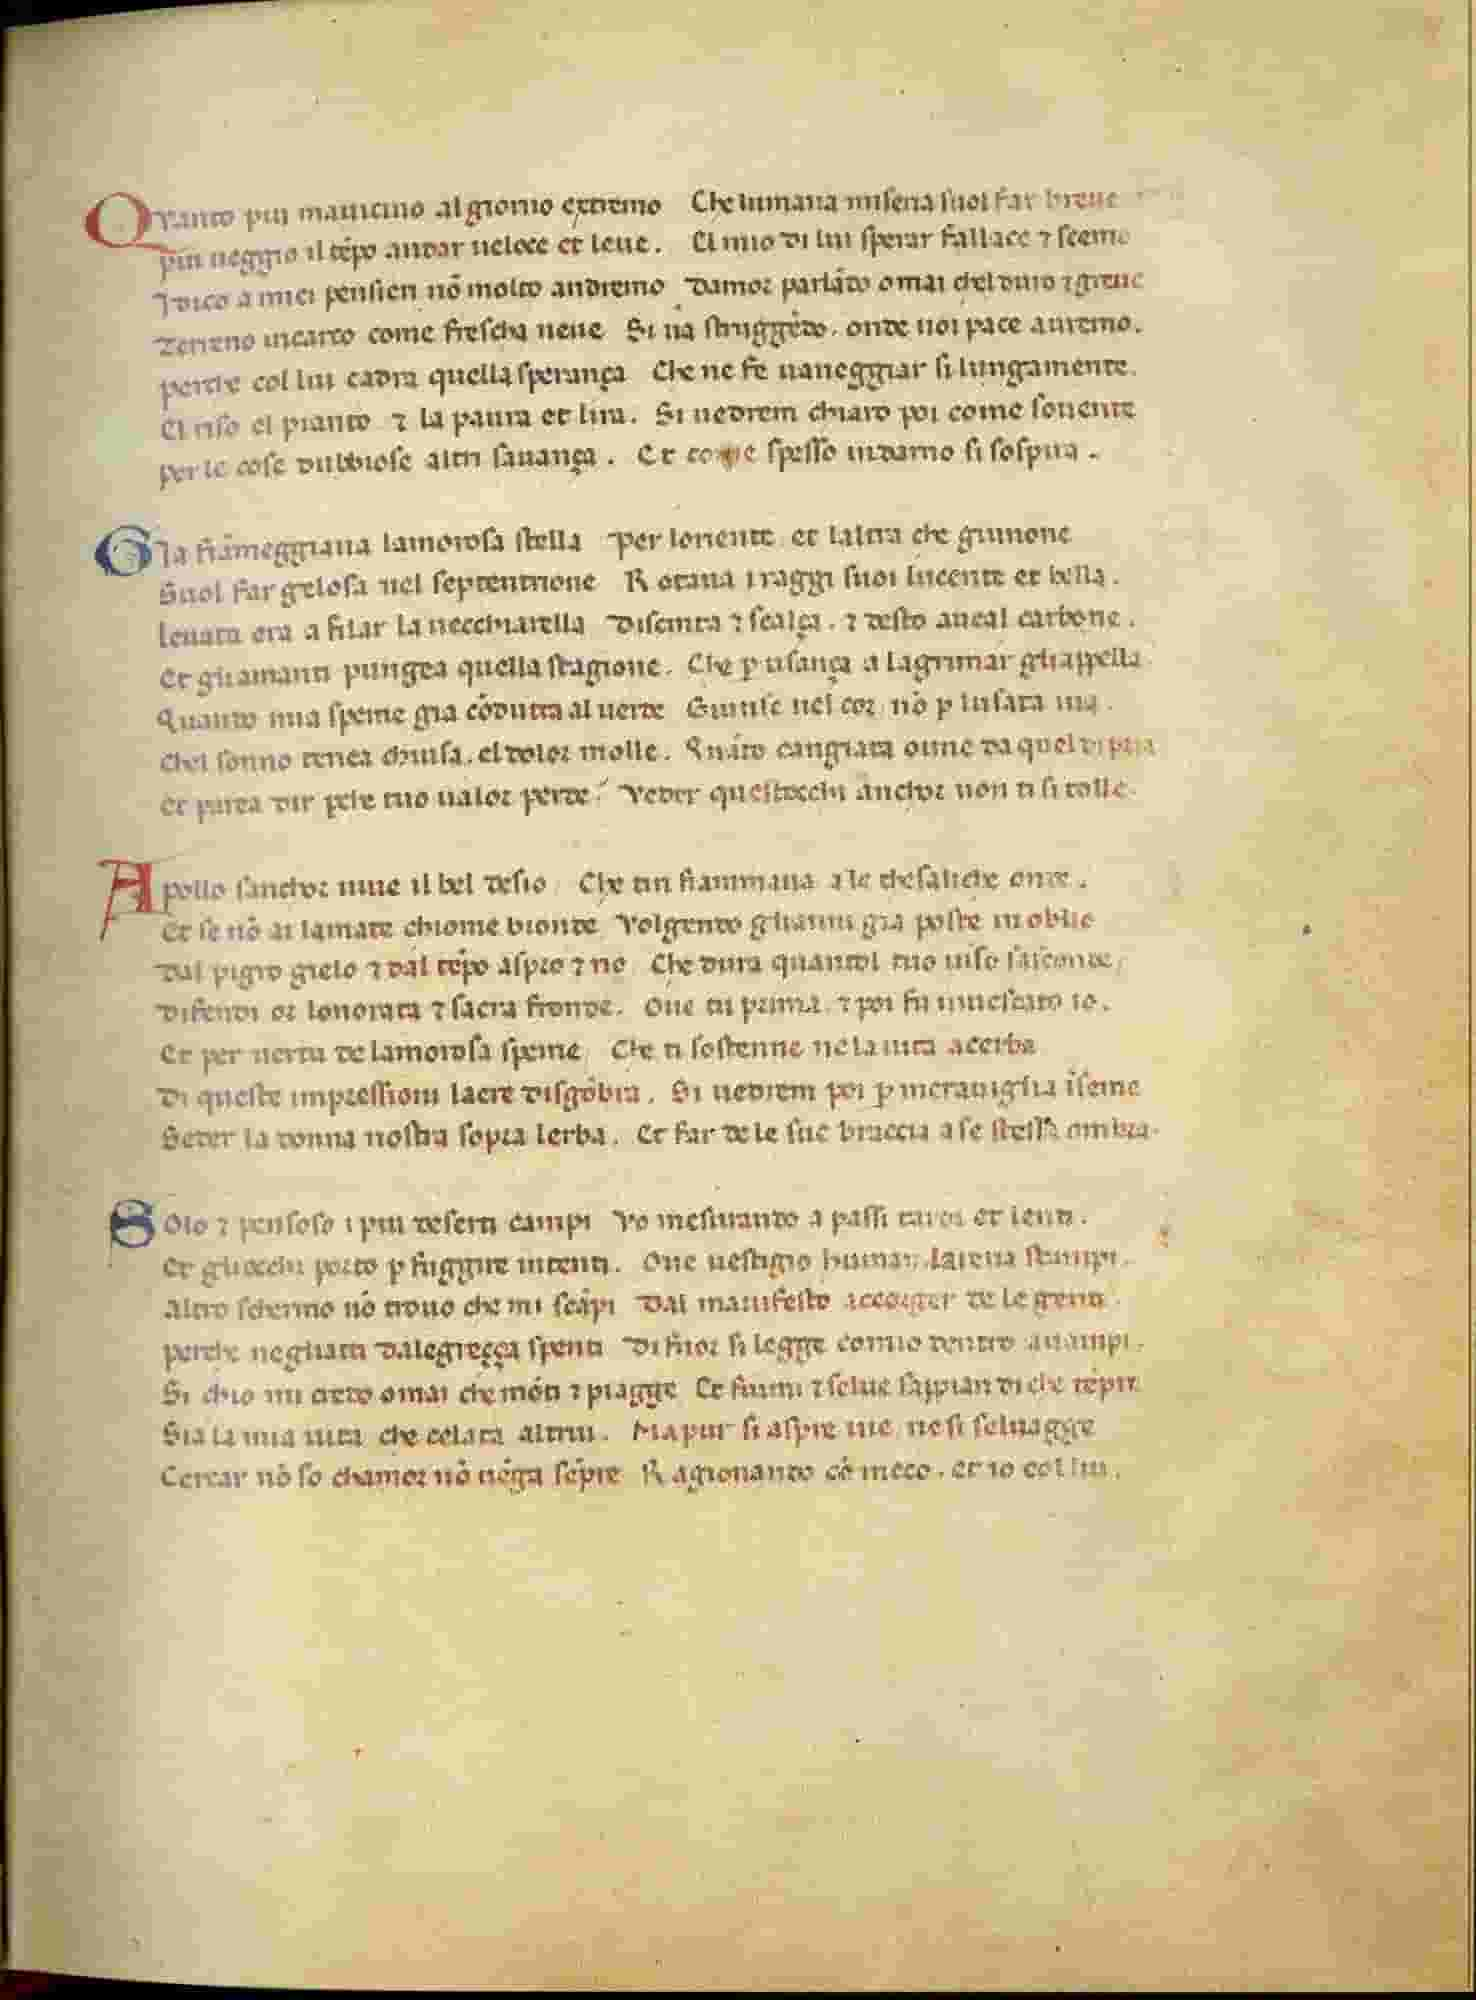 Quanto piu mauicino al giorno extremo Che lumana miseria suol far breue
piu ueggio il tẽpo andar ueloce et leue. El mio di lui sperar fallace ⁊ scemo
Idico a miei pensier nõ molto andremo Damor parlãdo omai chel duro ⁊ greue
Terreno incarco come frescha neue Si ua struggẽdo. onde noi pace auremo.
perche col lui cadra quella sperança Che ne fe uaneggiar si lungamente.
El riso el pianto ⁊ la paura et lira. Si uedrem chiaro poi come souente
per le cose dubbiose altri sauança. Et come spesso indarno si sospira.
Gia fiãmeggiaua lamorosa stella per loriente et laltra che giunone
Suol far gelosa nel septentrione Rotaua i raggi suoi lucente et bella.
leuata era a filar la uecchiarella Discinta ⁊ scalça. ⁊ desto auea l carbone.
Et gliamanti pungea quella stagione. Che ꝑ usança a lagrimar gliappella
Quando mia speme gia cõdutta al uerde Giunse nel cor nõ ꝑ lusata uia.
Chel sonno tenea chiusa. el dolor molle. Quãto cangiata oime da quel di pria
Et parea dir perche tuo ualor perde? Veder questocchi anchor non ti si tolle.
Apollo sanchor uiue il bel desio Che tin fiammaua a le thesaliche onde.
Et se nõ ai lamate chiome bionde Volgendo glianni gia poste in oblio
Dal pigro gielo ⁊ dal tẽpo aspro ⁊ rio Che dura quantol tuo uiso sasconde,
Difendi or lonorata ⁊ sacra fronde. Oue tu prima. ⁊ poi fu inuescato io.
Et per uertu de lamorosa speme Che ti sostenne ne la uita acerba
Di queste impressioni laere disgõbra. Si uedrem poi ꝑ merauiglia ĩseme
Seder la donna nostra sopra lerba. Et far de le sue braccia a se stessa ombra.
Solo ⁊ pensoso i piu deserti campi Vo mesurando a passi tardi et lenti.
Et gliocchi porto ꝑ fuggire intenti. Oue uestigio human larena stampi.
Altro schermo nõ trouo che mi scãpi Dal manifesto accorger de le genti.
perche negliatti dalegreçça spenti Di fuor si legge comio dentro auampi.
Si chio mi credo omai che mõti ⁊ piagge Et fiumi ⁊ selue sappian di che tẽpre
Sia la mia uita che celata altrui. Ma pur si aspre uie ne si seluagge
Cercar nõ so chamor nõ uẽga sẽpre Ragionando cõ meco. et io col lui.